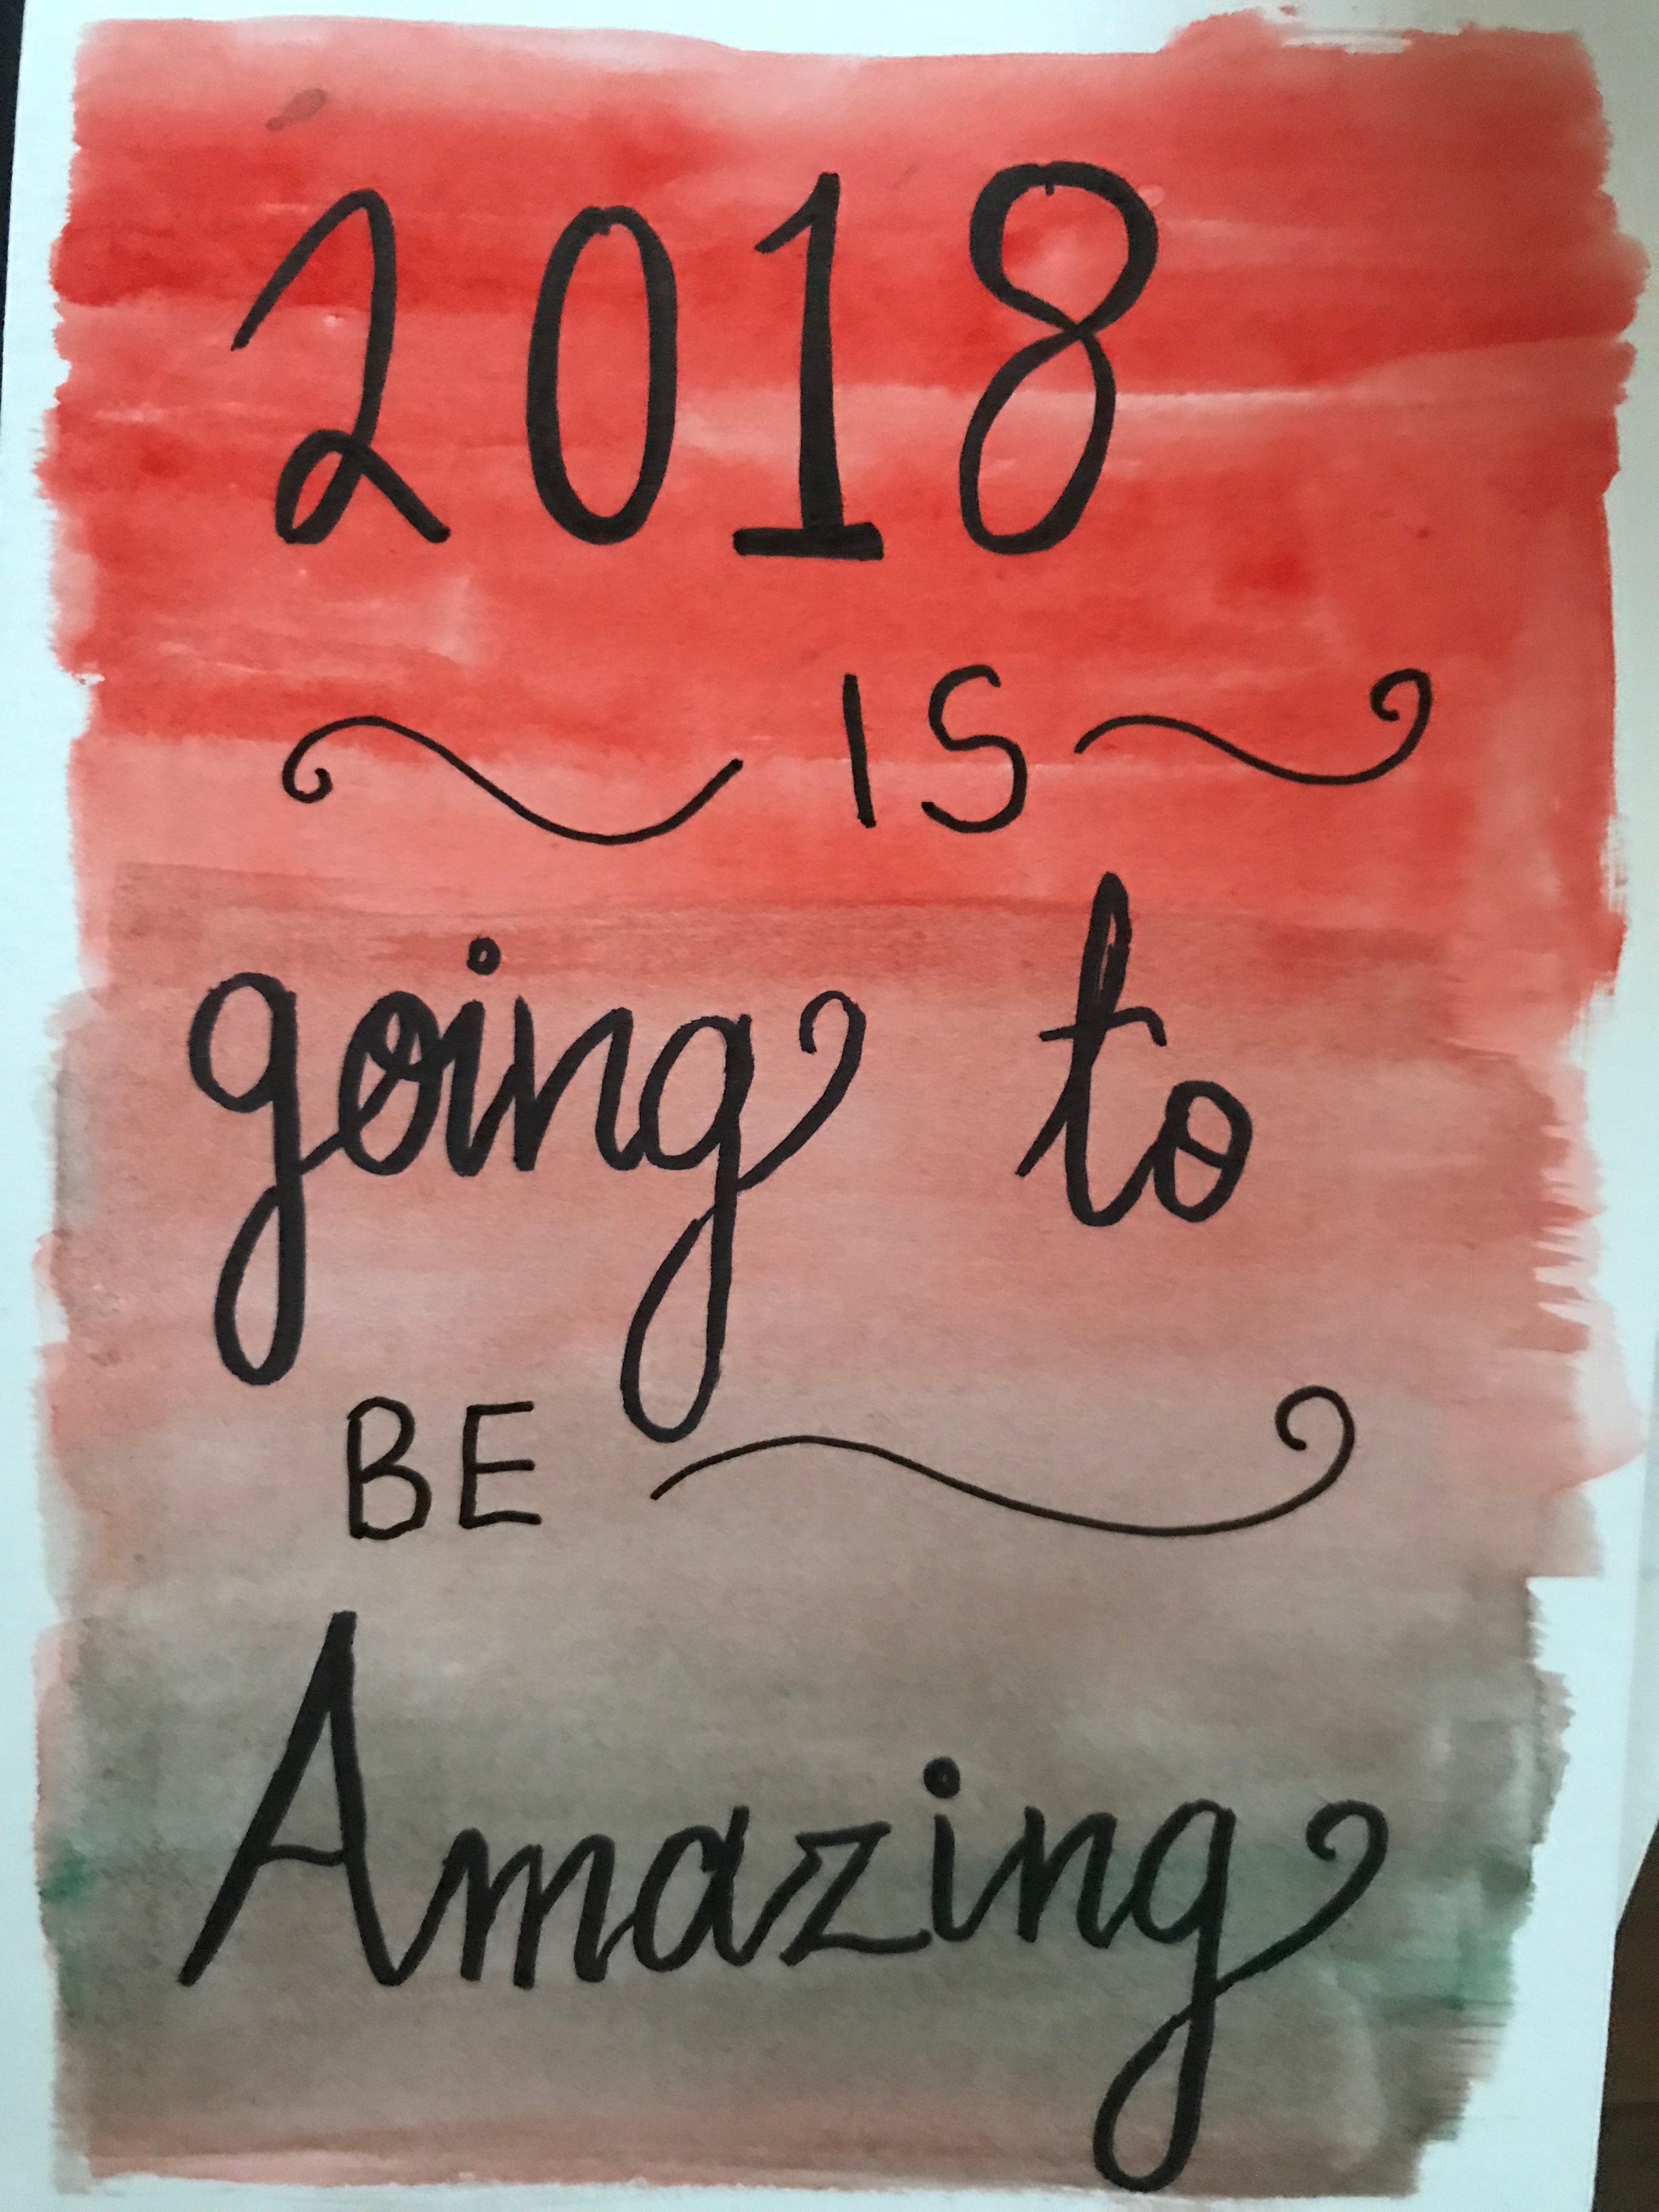 2018
IS
going to
BE
Amazing